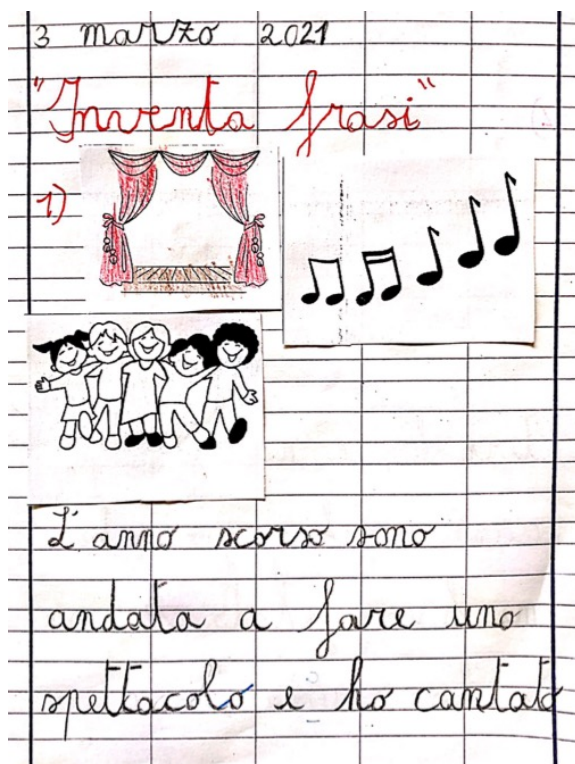 3 marzo 2021
"Inventa frasi"
1)
L'anno scorso sono
andata a fare uno
spettacolo e ho cantato